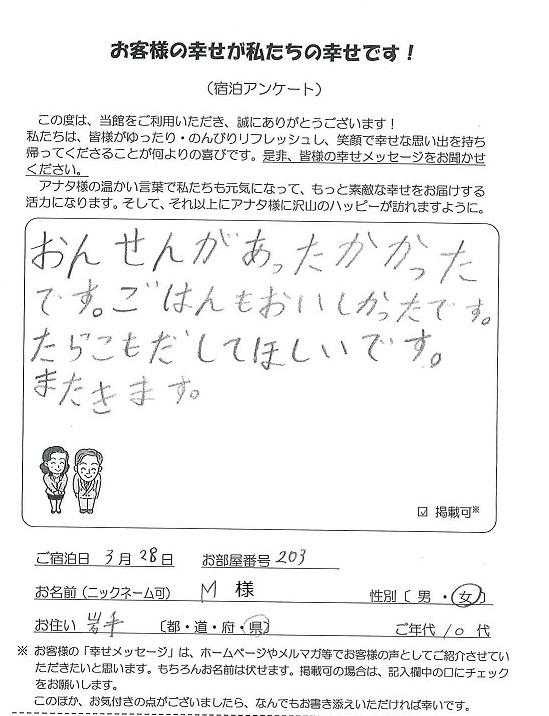 お客様の幸せが私たちの幸せです！
（宿泊アンケート）
この度は、当館をご利用いただき、誠にありがとうございます！
私たちは、皆様がゆったり・のんびりリフレッシュし、笑顔で幸せな思い出を持ち
帰ってくださることが何よりの喜びです。是非、皆様の幸せメッセージをお聞かせ
ください。
アナタ様の温かい言葉で私たちも元気になって、もっと素敵な幸せをお届けする
活力になります。そして、それ以上にアナタ様に沢山のハッピーが訪れますように。
おんせんがあったかかった
です。ごはんもおいしかったです。
たらこもだしてほしいです。
またきます。
☑ 掲載可※
ご宿泊日 3月28日 お部屋番号 203
お名前（ニックネーム可） M 様 性別〔 男 ・ 女 〕
お住い 岩手 〔都・道・府・県〕 ご年代 10 代
※ お客様の「幸せメッセージ」は、ホームページやメルマガ等でお客様の声としてご紹介させてい
ただきたいと思います。もちろんお名前は伏せます。掲載可の場合は、記入欄中の口にチェック
をお願いします。
このほか、お気付きの点がございましたら、なんでもお書き添えいただければ幸いです。